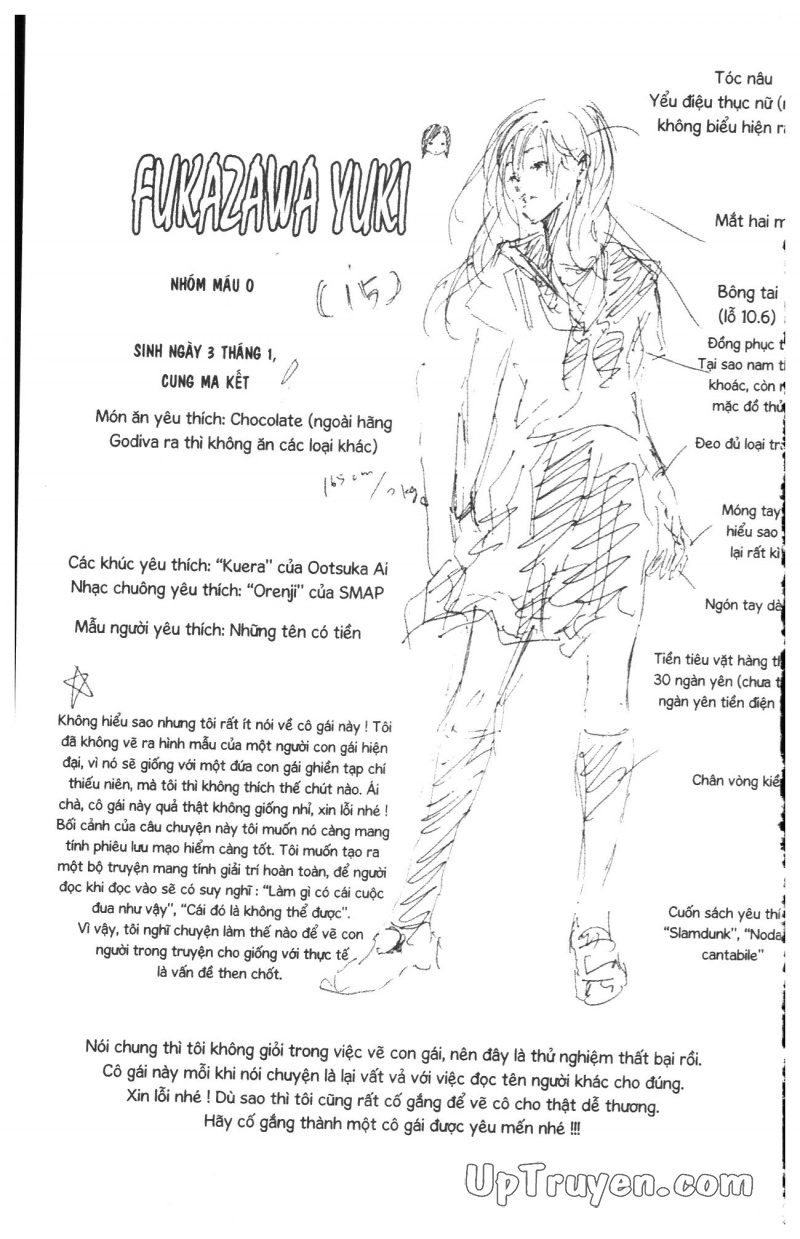 FUKAZAWA YUKI
NHÓM MÁU O
(15)
SINH NGÀY 3 THÁNG 1,
CUNG MA KẾT
Món ăn yêu thích: Chocolate (ngoài hãng
Godiva ra thì không ăn các loại khác)
165cm/
Các khúc yêu thích: “Kuera” của Ootsuka Ai
Nhạc chuông yêu thích: “Orenji” của SMAP
Mẫu người yêu thích: Những tên có tiền
Không hiểu sao nhưng tôi rất ít nói về cô gái này ! Tôi
đã không vẽ ra hình mẫu của một người con gái hiện
đại, vì nó sẽ giống với một đứa con gái ghiền tạp chí
thiếu niên, mà tôi thì không thích thế chút nào. Ái
chà, cô gái này quả thật không giống nhỉ, xin lỗi nhé !
Bối cảnh của câu chuyện này tôi muốn nó càng mang
tính phiêu lưu mạo hiểm càng tốt. Tôi muốn tạo ra
một bộ truyện mang tính giải trí hoàn toàn, để người
đọc khi đọc vào sẽ có suy nghĩ : “Làm gì có cái cuộc
đua như vậy”, “Cái đó là không thể được”.
Vì vậy, tôi nghĩ chuyện làm thế nào để vẽ con
người trong truyện cho giống với thực tế
là vấn đề then chốt.
Tóc nâu
Yểu điệu thục nữ (
không biểu hiện
Mắt hai
Bông tai
(lỗ 10.6)
Đồng phục
Tại sao nam
khoác, còn
mặc đồ
Đeo đủ loại
Móng tay
hiểu sao
lại rất
Ngón tay
Tiền tiêu vặt hàng
30 ngàn yên (chưa
ngàn yên tiền điện
Chân vòng
Cuốn sách yêu
“Slamdunk”,
cantabile”
Nói chung thì tôi không giỏi trong việc vẽ con gái, nên đây là thử nghiệm thất bại rồi.
Cô gái này mỗi khi nói chuyện là lại vất vả với việc đọc tên người khác cho đúng.
Xin lỗi nhé ! Dù sao thì tôi cũng rất cố gắng để vẽ cô cho thật dễ thương.
Hãy cố gắng thành một cô gái được yêu mến nhé !!!
UpTruyen.com